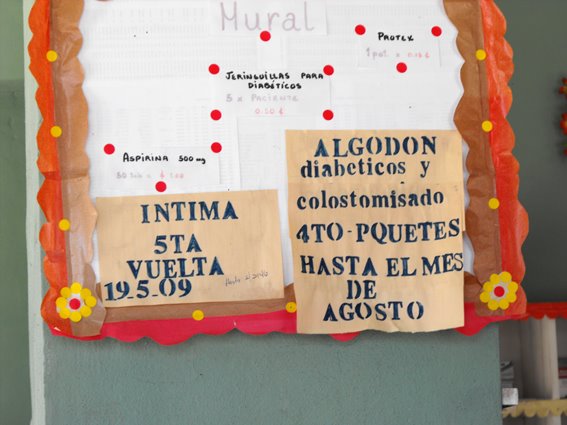 Mural
PROTEX
JERINGUILLAS PARA
DIABÉTICOS
5 x PACIENTE
0.50 ¢
ASPIRINA 500 mg
INTIMA
5TA
VUELTA
19-5-09
ALGODON
diabeticos y
colostomisado
4TO-PQUETES
HASTA EL MES
DE
AGOSTO